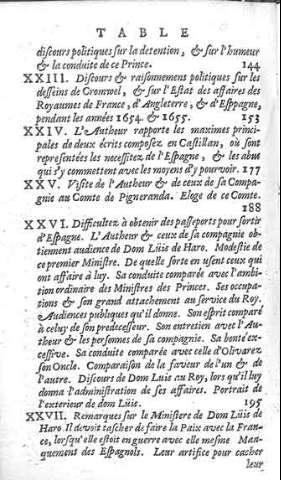 TABLE
discours politiques sur la detention, & sur l'humeur
& la conduite de ce Prince. 144
XXIII. Discours & raisonnement politiques sur les
desseins de Cromwel, & sur l'Estat des affaires des
Royaumes de France, d'Angleterre, & d'Espagne,
pendant les années 1654. & 1655. 153
XXIV. L'Autheur rapporte les maximes princi-
pales de deux écrits composez en Castillan, où sont
representées les necessitez de l'Espagne, & les abus
qui s'y commettent avec les moyens d'y pourvoir. 177
XXV. Visite de l'Autheur & de ceux de sa Compa-
gnie au Comte de Pigneranda. Eloge de ce Comte.
188
XXVI. Difficultez à obtenir des passeports pour sortir
d'Espagne. L'Autheur & ceux de sa compagnie ob-
tiennent audience de Dom Lüis de Haro. Modestie de
ce premier Ministre. De quelle sorte en usent ceux qui
ont affaire à luy. Sa conduite comparée avec l'am-
bition ordinaire des Ministres des Princes. Ses occupa-
tions & son grand attachement au service du Roy.
Audiences publiques qu'il donne. Son esprit comparé
à celuy de son predecesseur. Son entretien avec l'Au-
theur & les personnes de sa compagnie. Sa bonté ex-
cessive. Sa conduite comparée avec celle d'Olivarez
son Oncle. Comparaison de la faveur de l'un & de
l'autre. Discours de Dom Lüis au Roy, lors qu'il luy
donna l'administration de ses affaires. Portrait de
l'exterieur de dom Lüis. 195
XXVII. Remarques sur le Ministere de Dom Lüis de
Haro. Il devoit tascher de faire la Paix avec la Fran-
ce, lorsqu'elle estoit en guerre avec elle mesme Man-
quement des Espagnols. Leur artifice pour cacher
leur